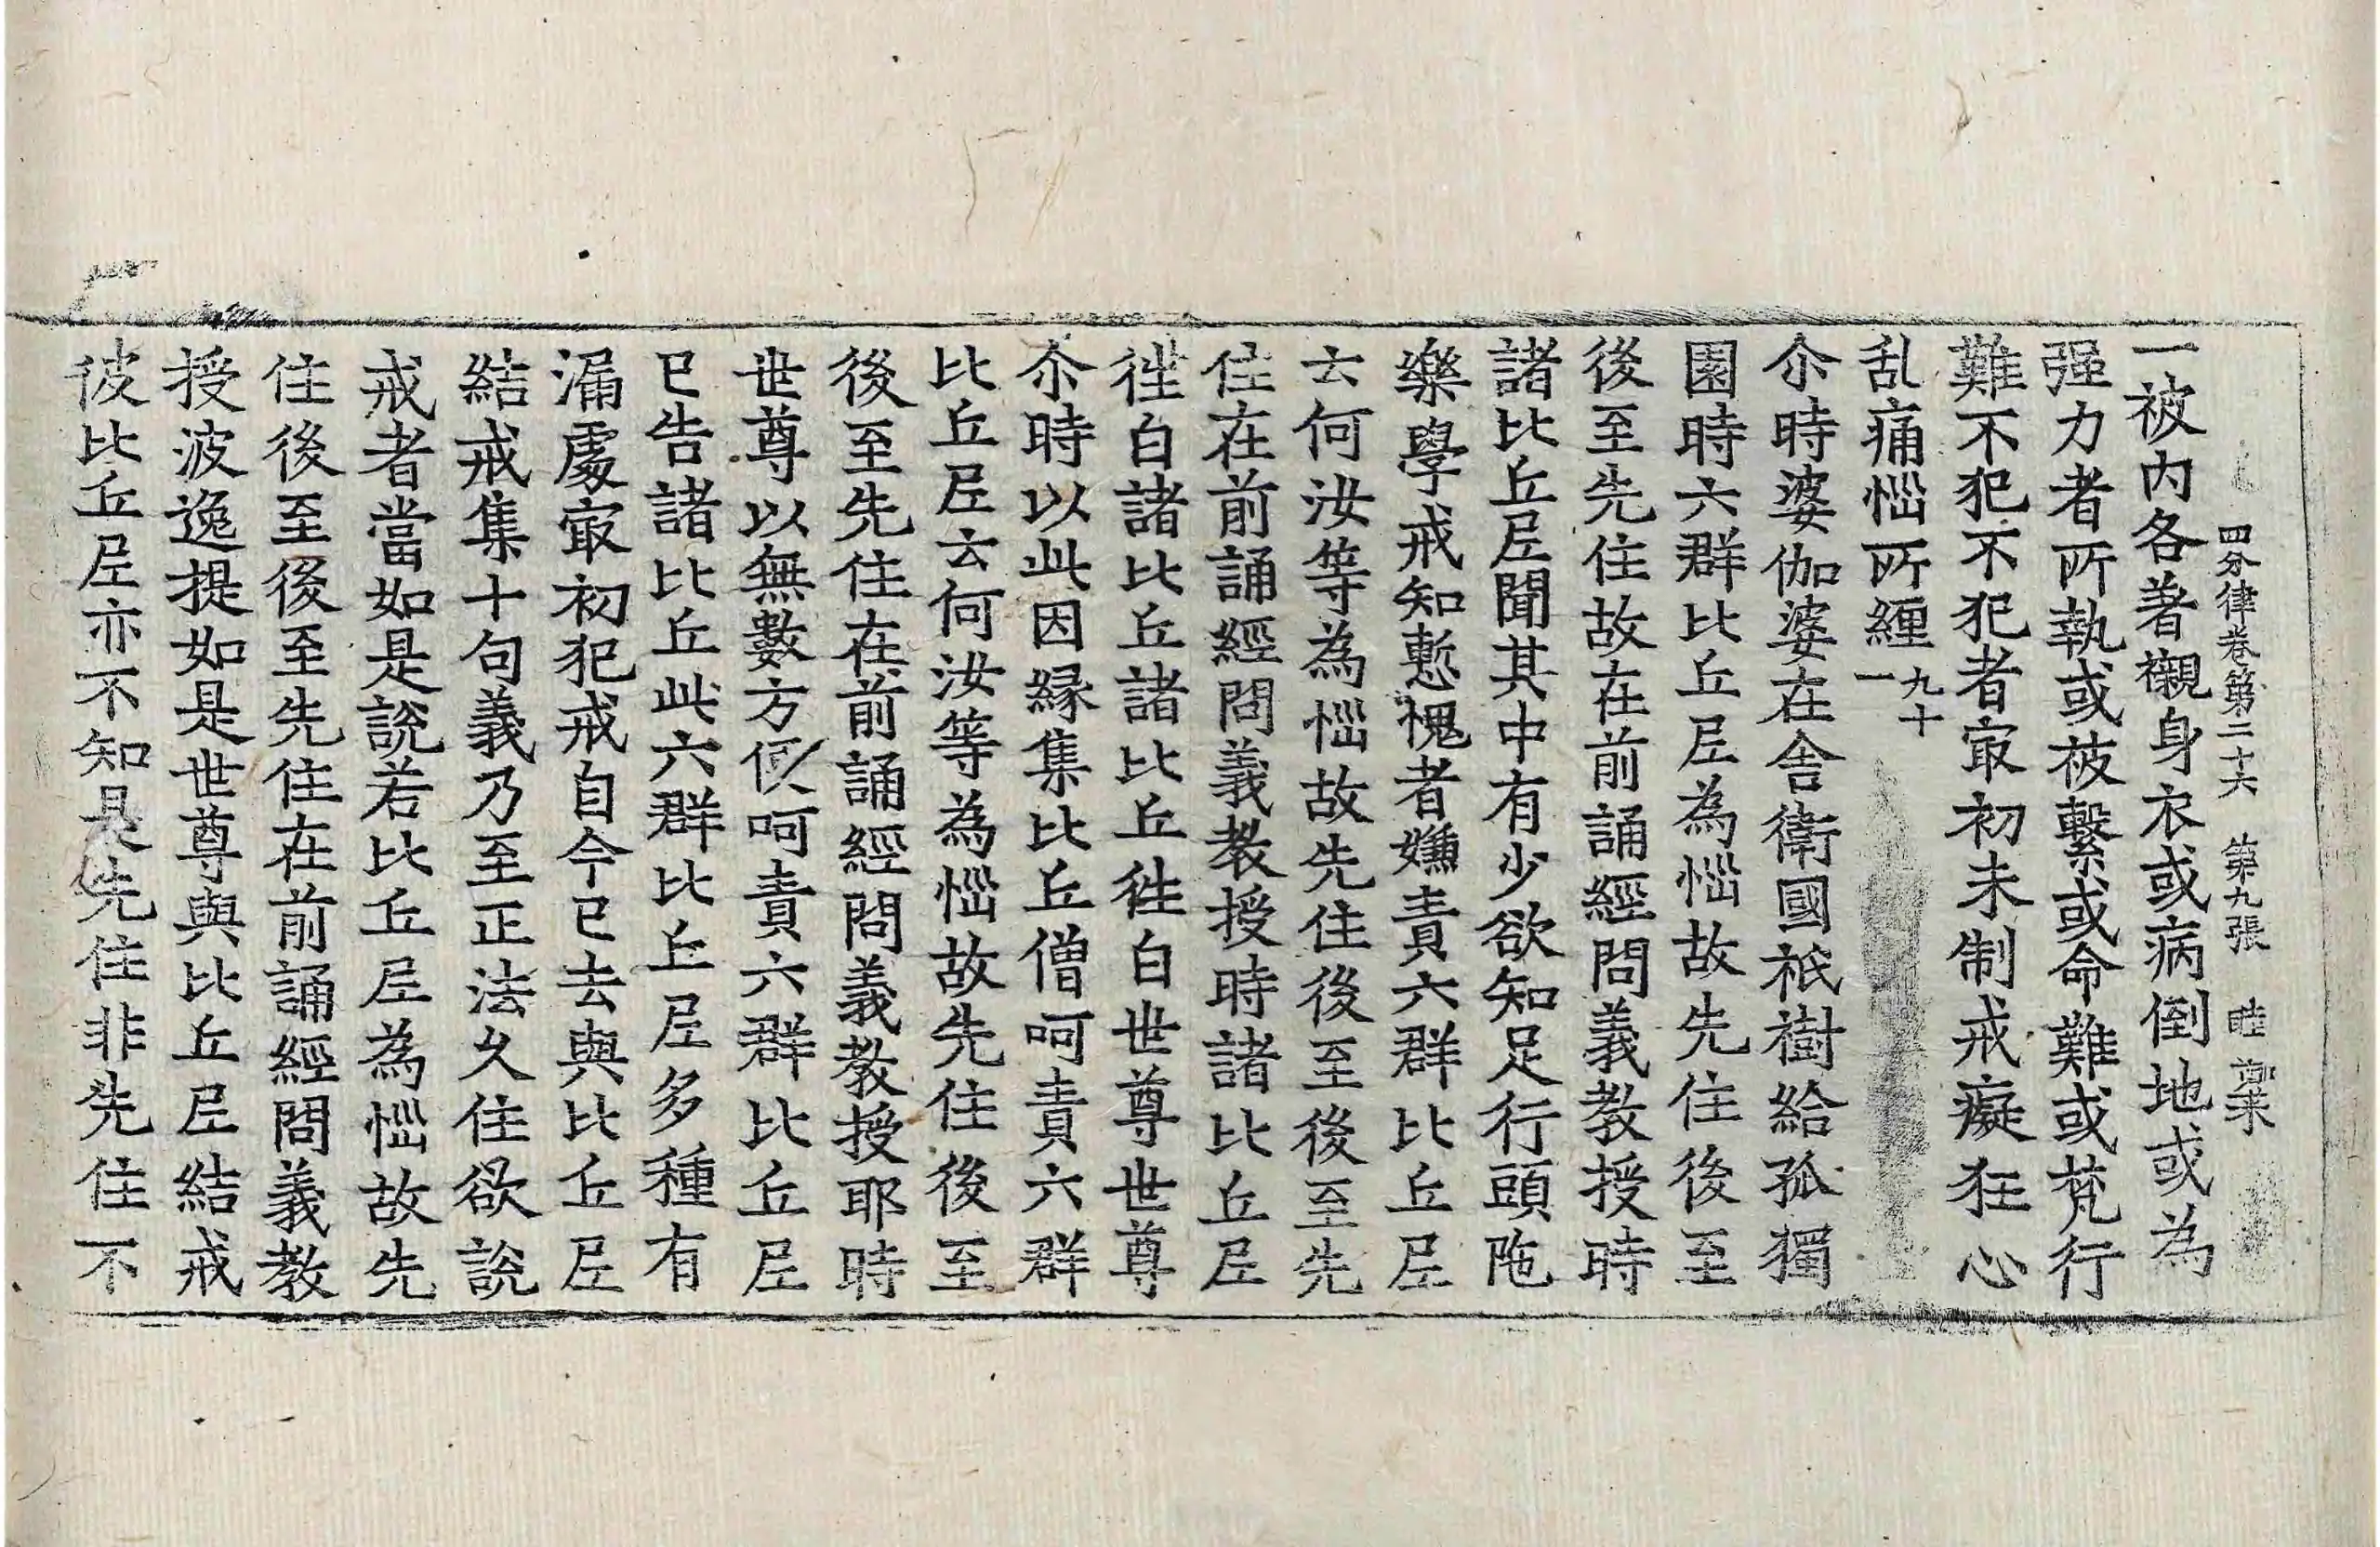 四分律卷第二十六　第九張　睦
一被内各著襯身衣或病倒地或為
强力者所執或被繫或命難或梵行
難不犯不犯者㝡初未制戒癡狂心
乱痛惱所纏九十一
尒時婆伽婆在舍衛國祇樹給孤獨
園時六群比丘尼為惱故先住後至
後至先住故在前誦經問義教授時
諸比丘尼聞其中有少欲知足行頭陁
樂學戒知慙愧者嫌責六群比丘尼
云何汝等為惱故先住後至後至先
住在前誦經問義教授時諸比丘尼
徃白諸比丘諸比丘徃白世尊世尊
尒時以此因縁集比丘僧呵責六群
比丘尼云何汝等為惱故先住後至
後至先住在前誦經問義教授耶時
世尊以無數方便呵責六群比丘尼
已告諸比丘此六群比丘尼多種有
漏處㝡初犯戒自今已去與比丘尼
結戒集十句義乃至正法久住欲說
戒者當如是說若比丘尼為惱故先
住後至後至先住在前誦經問義教
授波逸提如是世尊與比丘尼結戒
彼比丘尼亦不知是先住非先住不